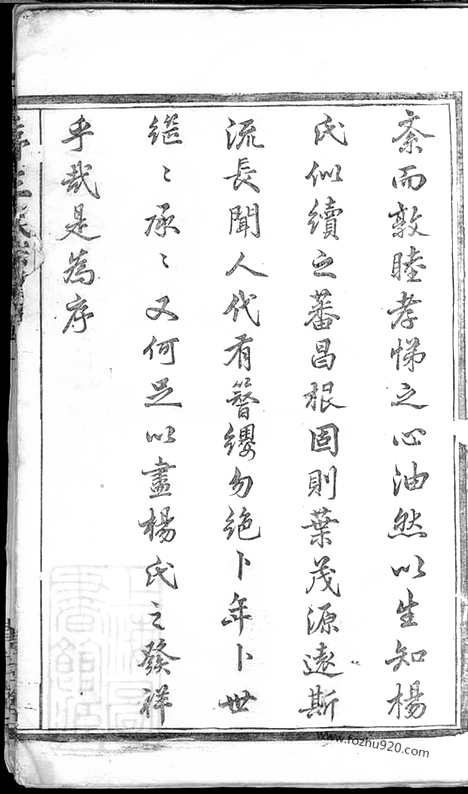 紊而敦睦孝悌之心油然以生知楊
氏似續之蕃昌根固則葉茂源遠斯
流長聞人代有簪纓勿絕卜年卜世
繼〻承〻又何足以盡楊氏之發祥
乎哉是為序
www.fozhu920.com